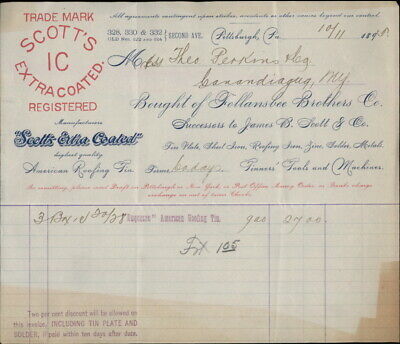 All agreements contingent upon strikes, accidents or other causes beyond our control.
TRADE MARK
SCOTT'S
IC
EXTRA COATED.
REGISTERED
328, 330 & 332 SECOND AVE.
(OLD NOS. 322 AND 324)
Pittsburgh, Pa. 10/11 1895
Mess Theo. Perkins
Canandaigua, NY
Bought of Follansbee Brothers Co.
Successors to James B. Scott & Co.
Manufacturers
"Scott's Extra Coated"
highest quality
American Roofing Tin.
Tin Plate, Sheet Iron, Roofing Iron, Zinc, Solder, Metals.
Terms, 60 days Tinners' Tools and Machines.
In remitting, please send Draft on Pittsburgh or New York, or Post Office Money Order, or Banks charge
exchange on out of town Checks.
3 Bxs 20/28 "Duquesne" American Roofing Tin. 9.00 27.00
Frt 1.05
Two per cent discount will be allowed on
this invoice, INCLUDING TIN PLATE AND
SOLDER, if paid within ten days from date.